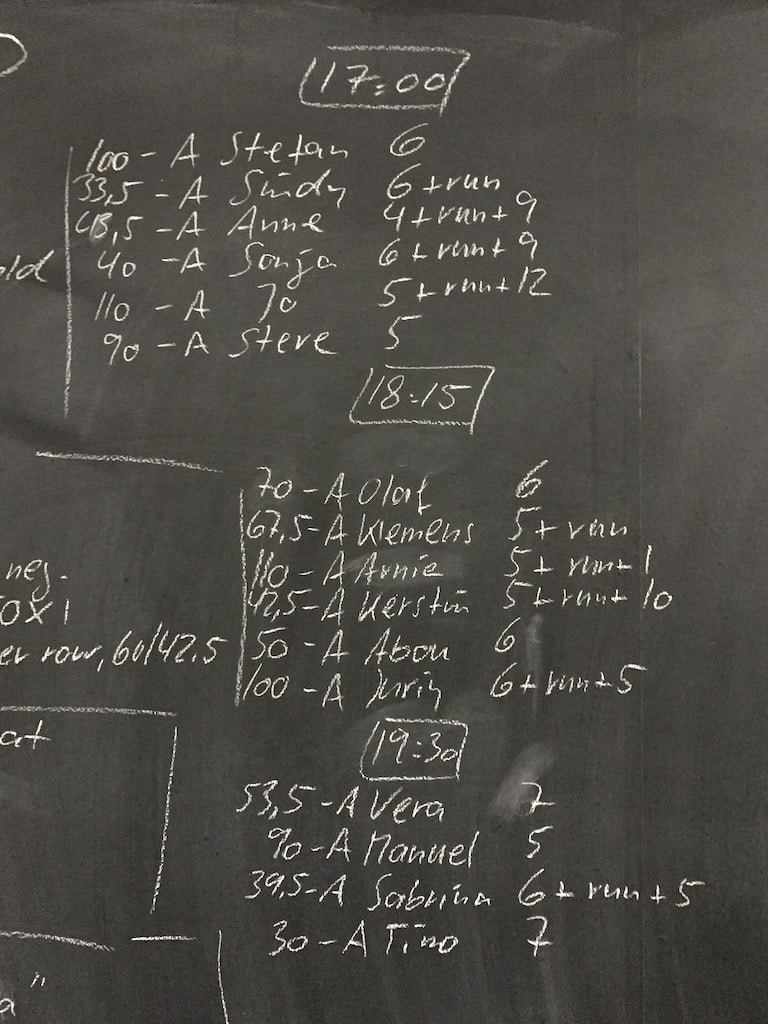 17:00
100 - A Stefan 6
33,5 - A Sindy 6 + run
43,5 - A Anne 4 + run + 9
old
40 - A Sonja 6 + run + 9
110 - A Jo 5 + run + 12
90 - A Steve 5
18:15
70 - A Olaf 6
67,5 - A Klemens 5 + run
neg.
110 - A Arnie 5 + run + 1
42,5 - A Kerstin 5 + run + 10
er row, 60/42.5
50 - A Abou 6
100 - A 6 + run + 5
at
19:30
53,5 - A Vera 7
90 - A Manuel 5
39,5 - A Sabrina 6 + run + 5
30 - A Tino 7
a"